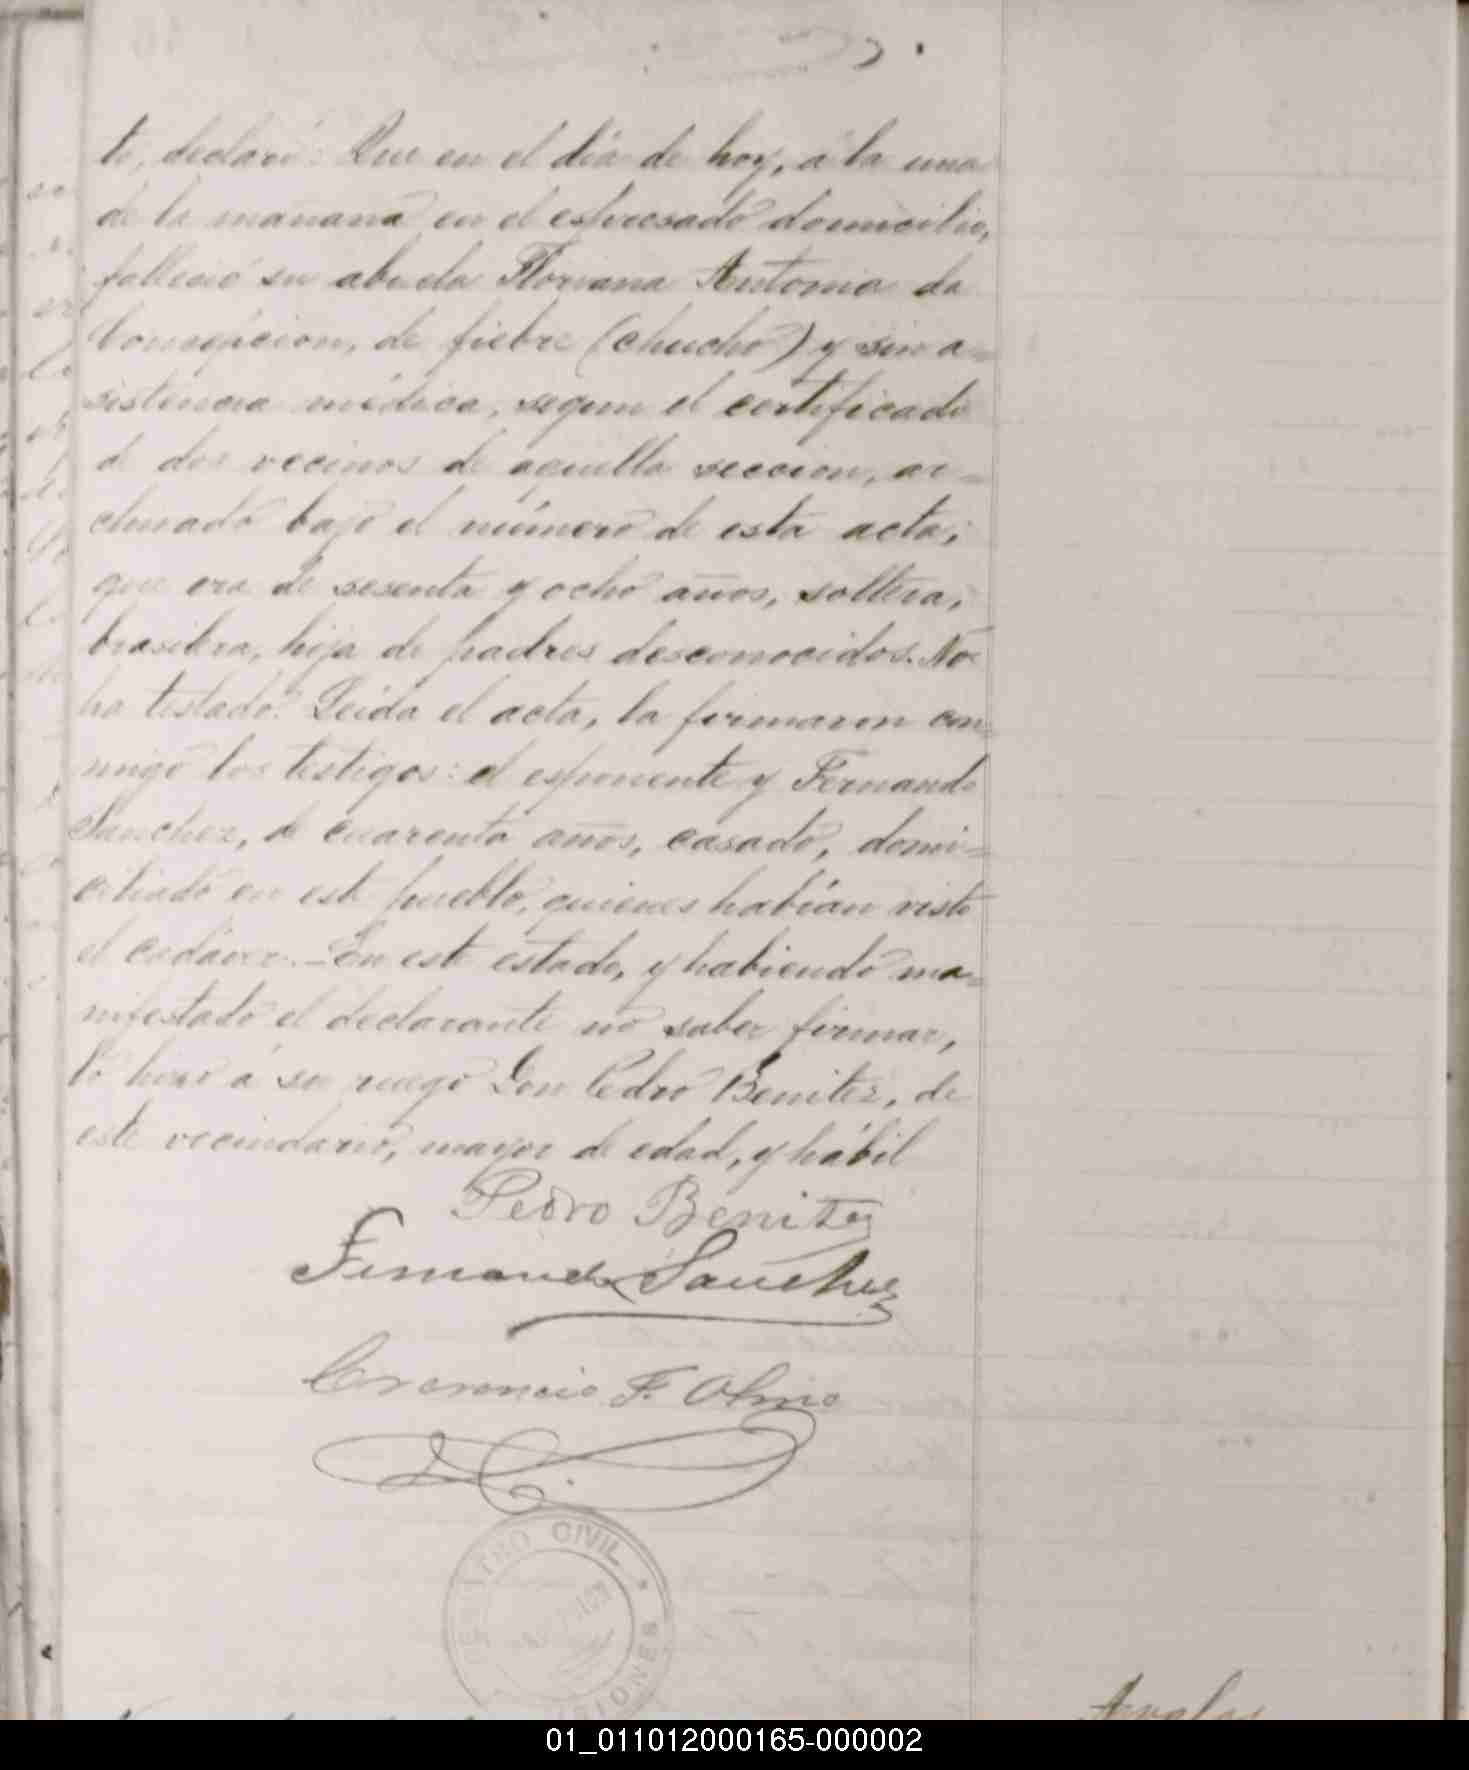 to, declaró: Que en el dia de hoy, á la una
de la mañana en el espresado domicilio,
falleció su abuela Floriana Antonia da
Concepcion, de fiebre (chucho) y sin a=
sistencia médica, segun el certificado
de dos vecinos de aquella seccion, ar=
chivado bajo el número de esta acta;
que era de sesenta y ocho años, soltera,
brasilera, hija de padres desconocidos. No
ha testado. Leida el acta, la firmaron con=
migo los testigos: el esponente y Fernando
Sanchez, de cuarenta años, casado, domi=
ciliado en este pueblo, quienes habían visto
el cadáver. - En este estado, y habiendo ma=
nifestado el declarante no saber firmar,
lo hizo á su ruego Don Pedro Benitez, de
este vecindario, mayor de edad, y hábil
Pedro Benitez
Fernando Sanchez
F. Olmo
CIVIL
01_011012000165-000002